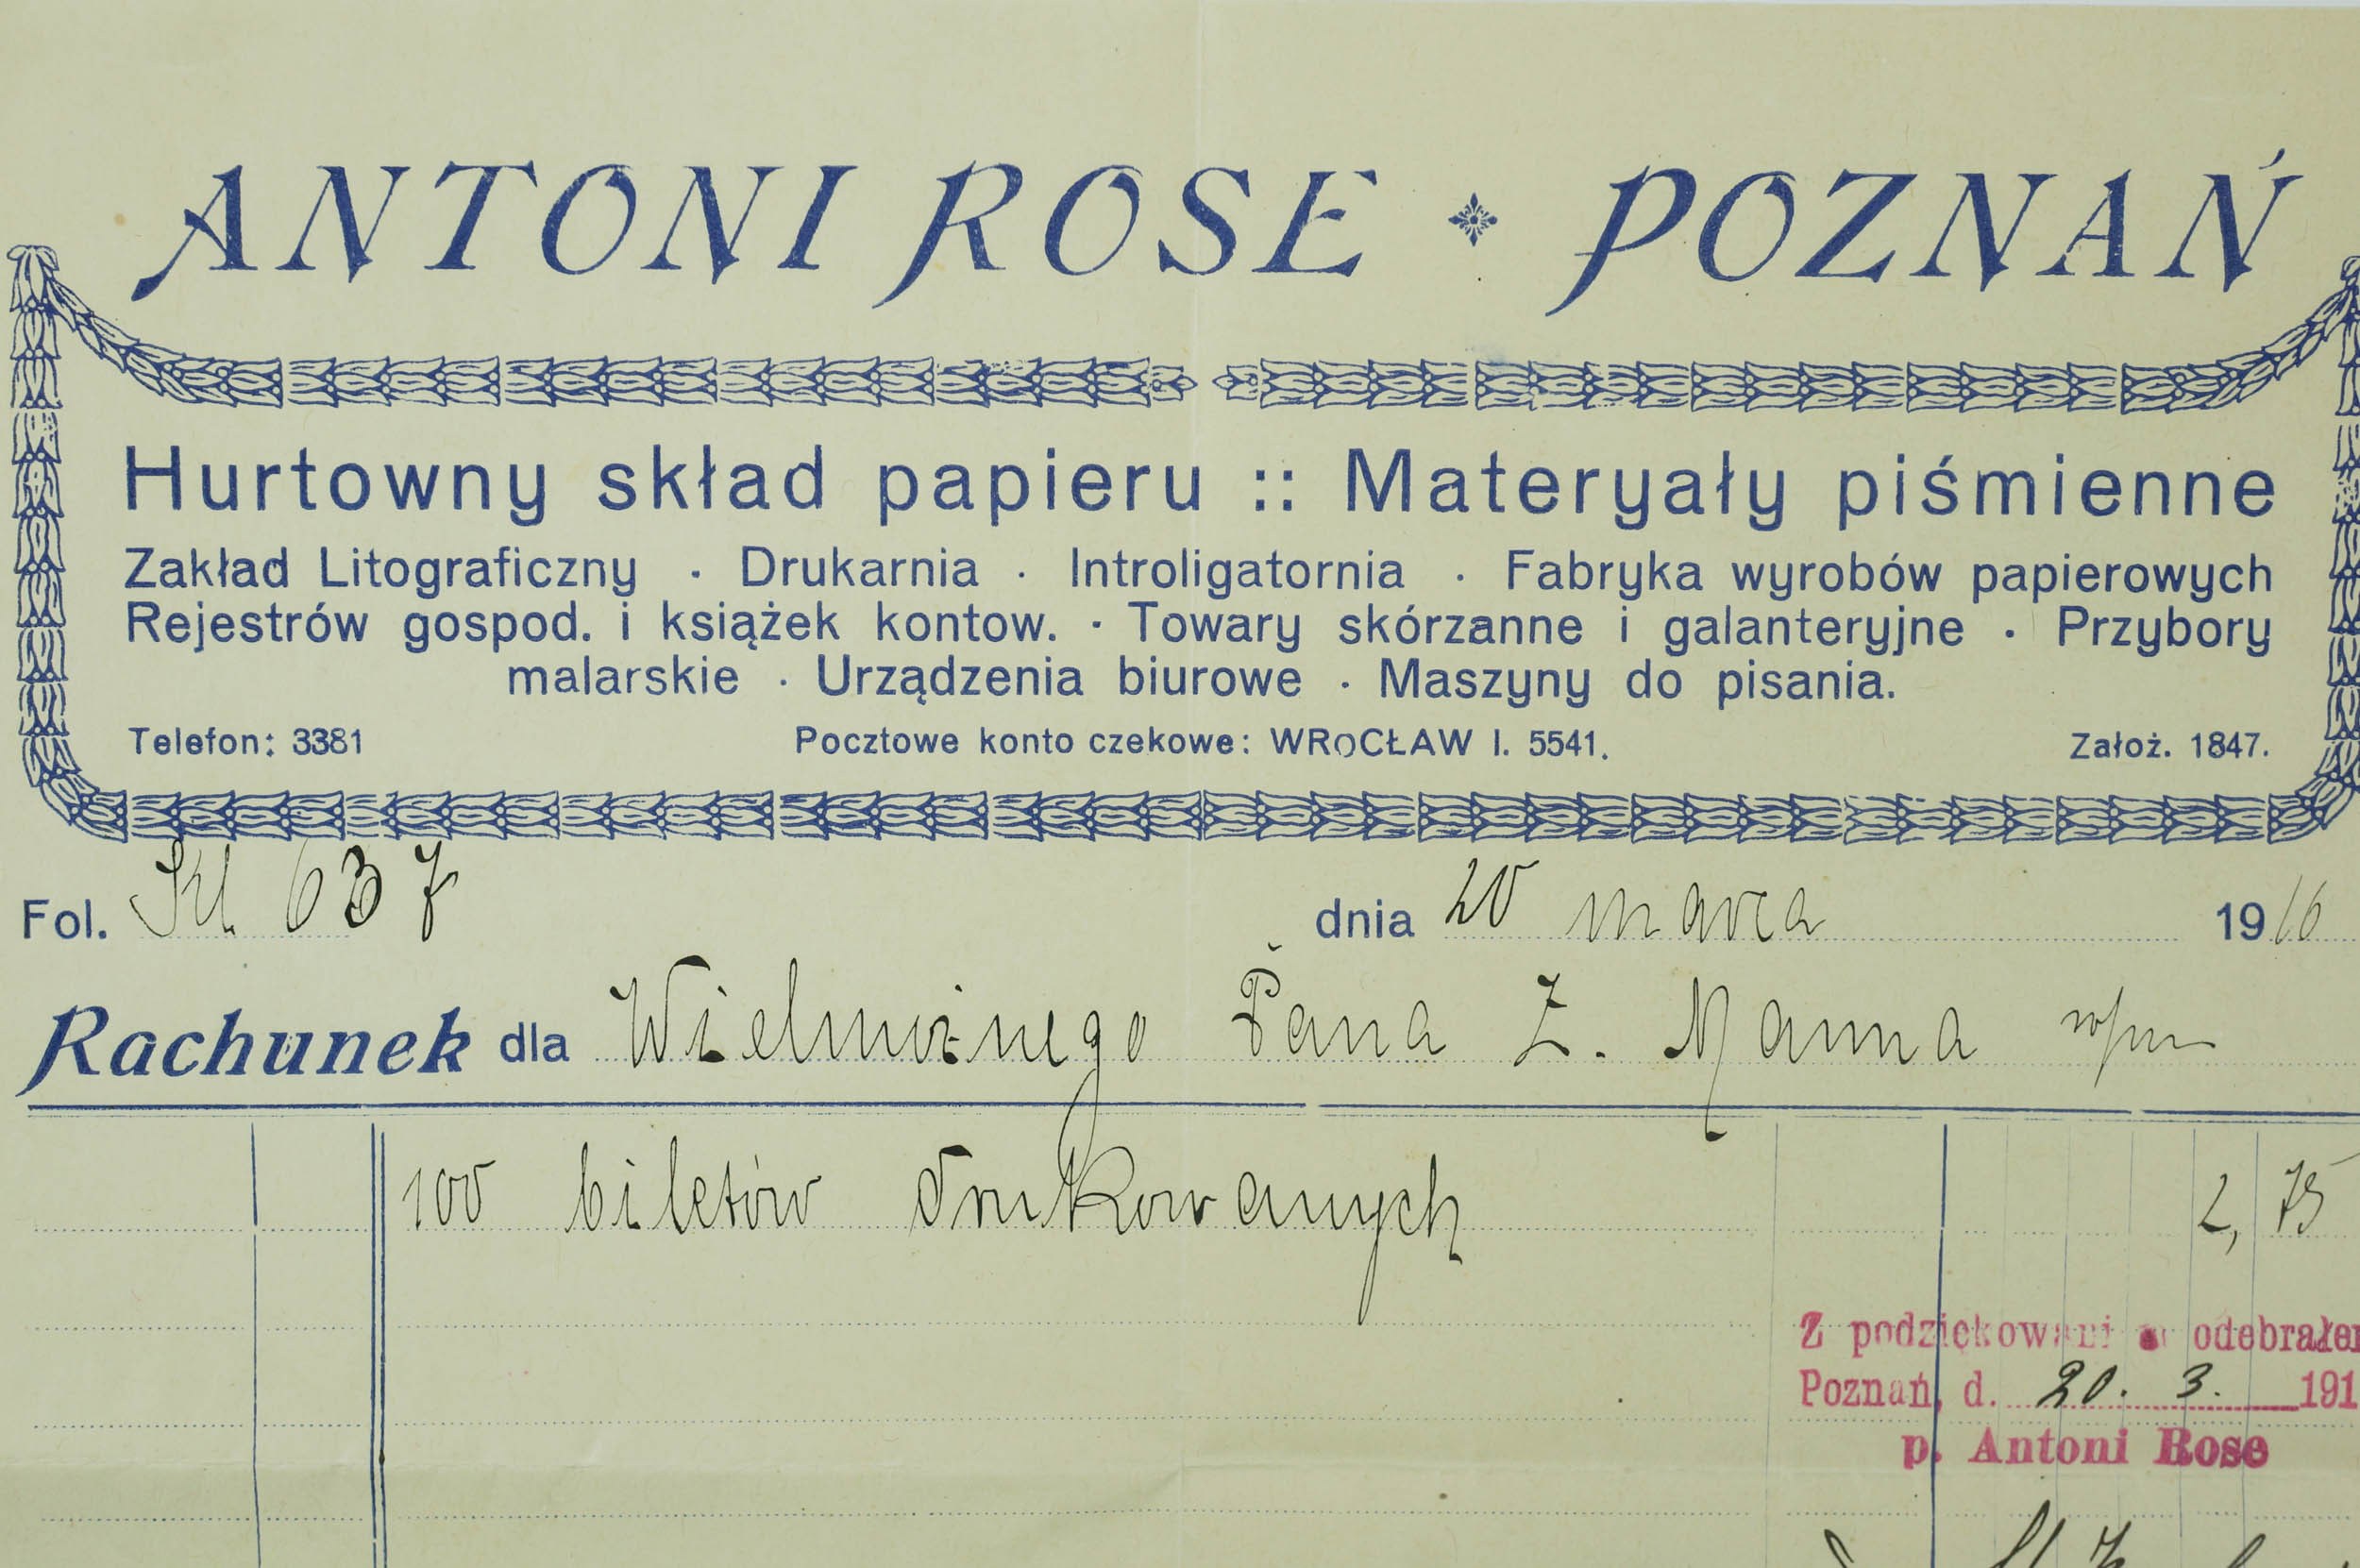 ANTONI ROSE POZNAŃ
Hurtowny skład papieru :: Materyały piśmienne
Zakład Litograficzny · Drukarnia · Introligatornia · Fabryka wyrobów papierowych
Rejestrów gospod. i książek kontow. · Towary skórzanne i galanteryjne · Przybory
malarskie · Urządzenia biurowe · Maszyny do pisania.
Telefon: 3381 Pocztowe konto czekowe: WROCŁAW I. 5541. Założ. 1847.
Fol. Kl 637 dnia 20 marca 1916
Rachunek dla Wielmożnego Pana Z. Manna
100 biletów drukowanych 2,75
Z podziękowaniem odebrałem
Poznań, d. 20. 3. 191
p. Antoni Rose